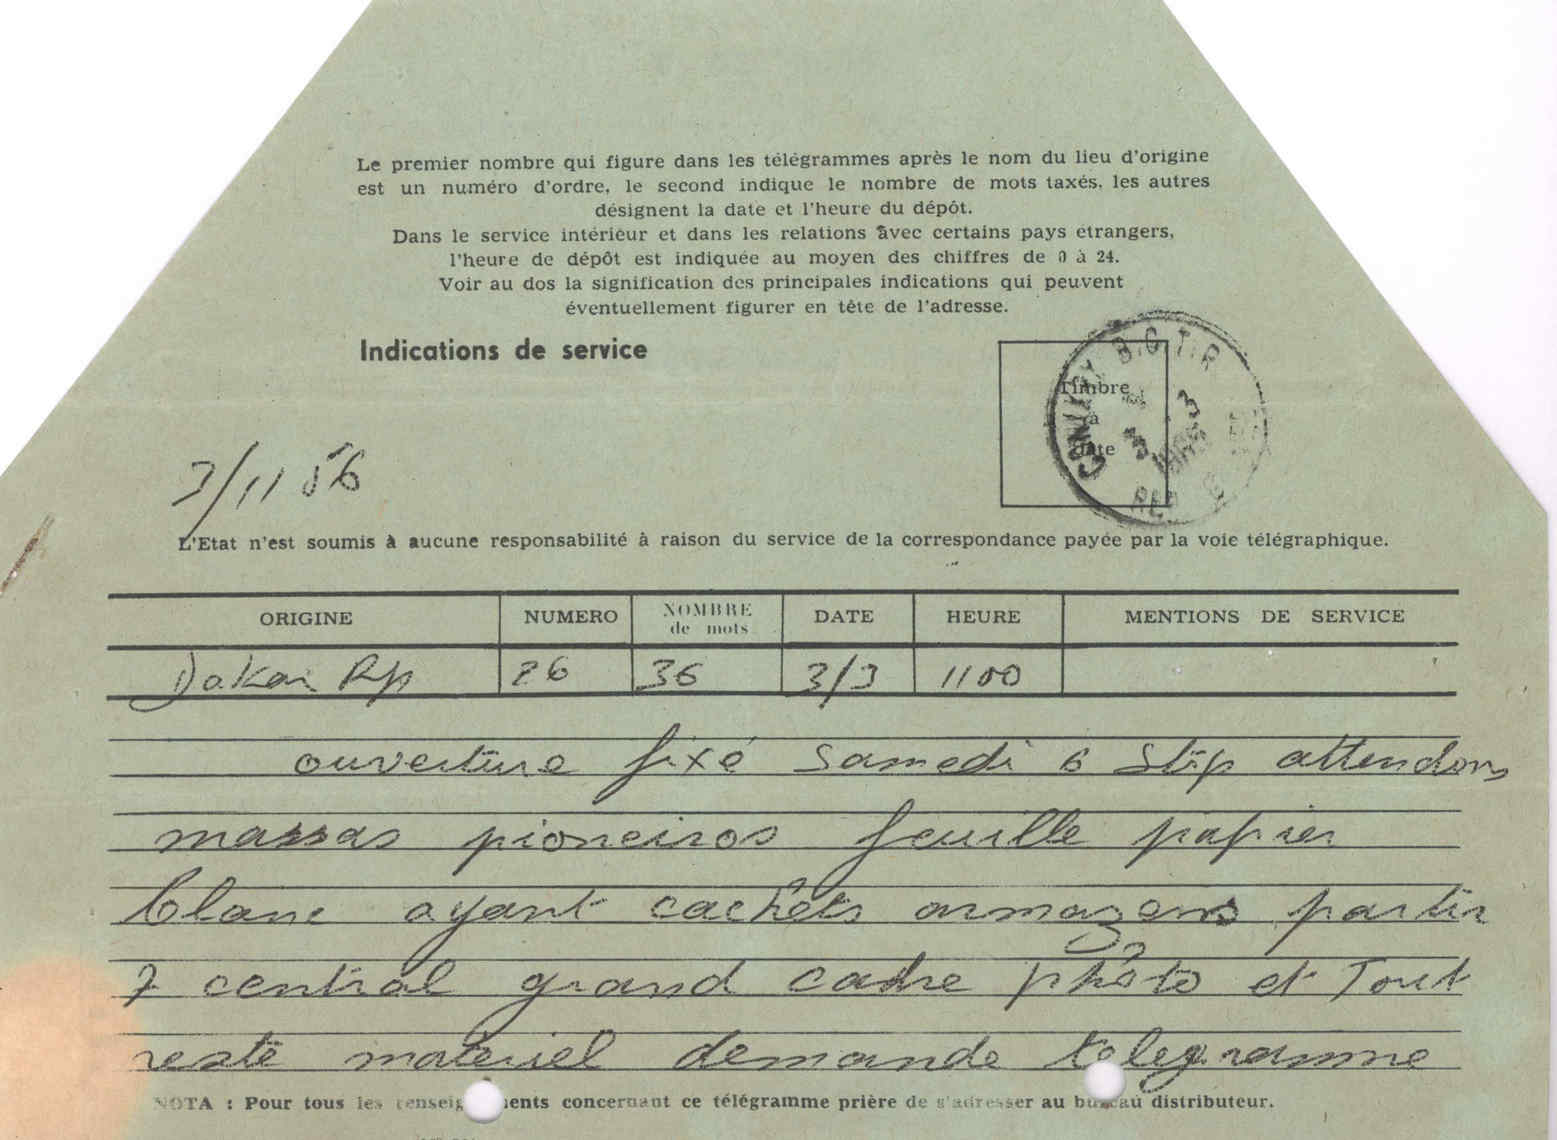 Le premier nombre qui figure dans les télégrammes après le nom du lieu d'origine
est un numéro d'ordre, le second indique le nombre de mots taxés, les autres
désignent la date et l'heure du dépôt.
Dans le service intérieur et dans les relations avec certains pays étrangers,
l'heure de dépôt est indiquée au moyen des chiffres de 0 à 24.
Voir au dos la signification des principales indications qui peuvent
éventuellement figurer en tête de l'adresse.
Indications de service
Timbre
à
date
CONAKRY B.C.T.R
3 3
3/11 56
L'Etat n'est soumis à aucune responsabilité à raison du service de la correspondance payée par la voie télégraphique.
ORIGINE NUMERO NOMBRE de mots DATE HEURE MENTIONS DE SERVICE
Dakar Rp 26 36 3/3 1100
ouverture fixé samedi 6 stip attendons
massas pioneiros feuille papier
blanc ayant cachêts armazens partir
7 central grand cadre phôto et Tout
reste materiel demande telegramme
NOTA : Pour tous les renseignements concernant ce télégramme prière de s'adresser au bureau distributeur.